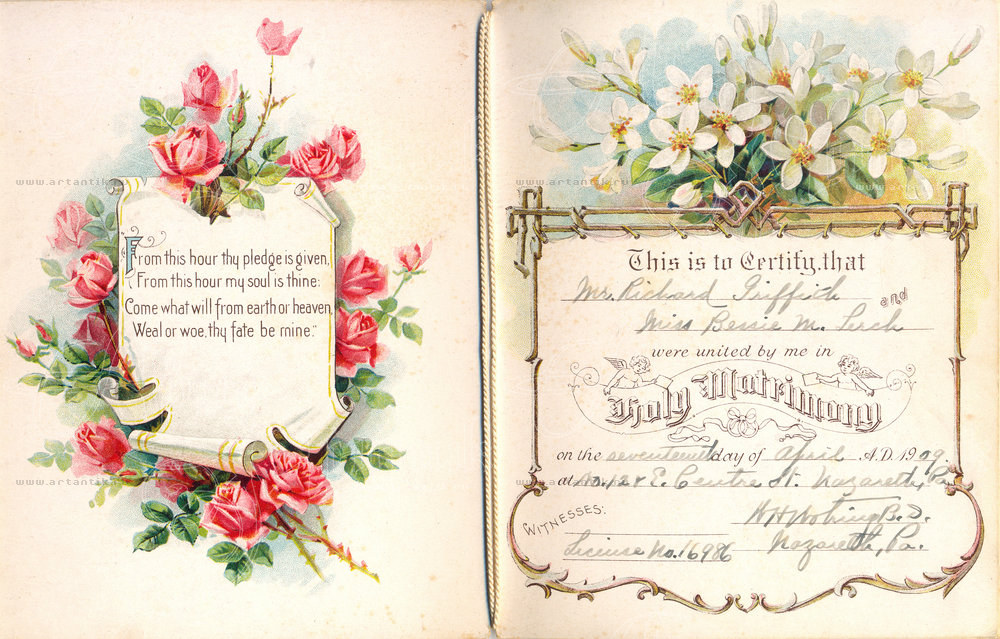 From this hour thy pledge is given,
From this hour my soul is thine:
Come what will from earth or heaven,
Weal or woe, thy fate be mine."
This is to Certify, that
Mr. Richard Griffith and
Miss Bessie M. Lerch
were united by me in
Holy Matrimony
on the seventeenth day of April A.D. 1909.
at No. 124 E. Centre St. Nazareth, Pa.
WITNESSES:
B.D.
License No. 16986 Nazareth, Pa.
www.artantik.ru